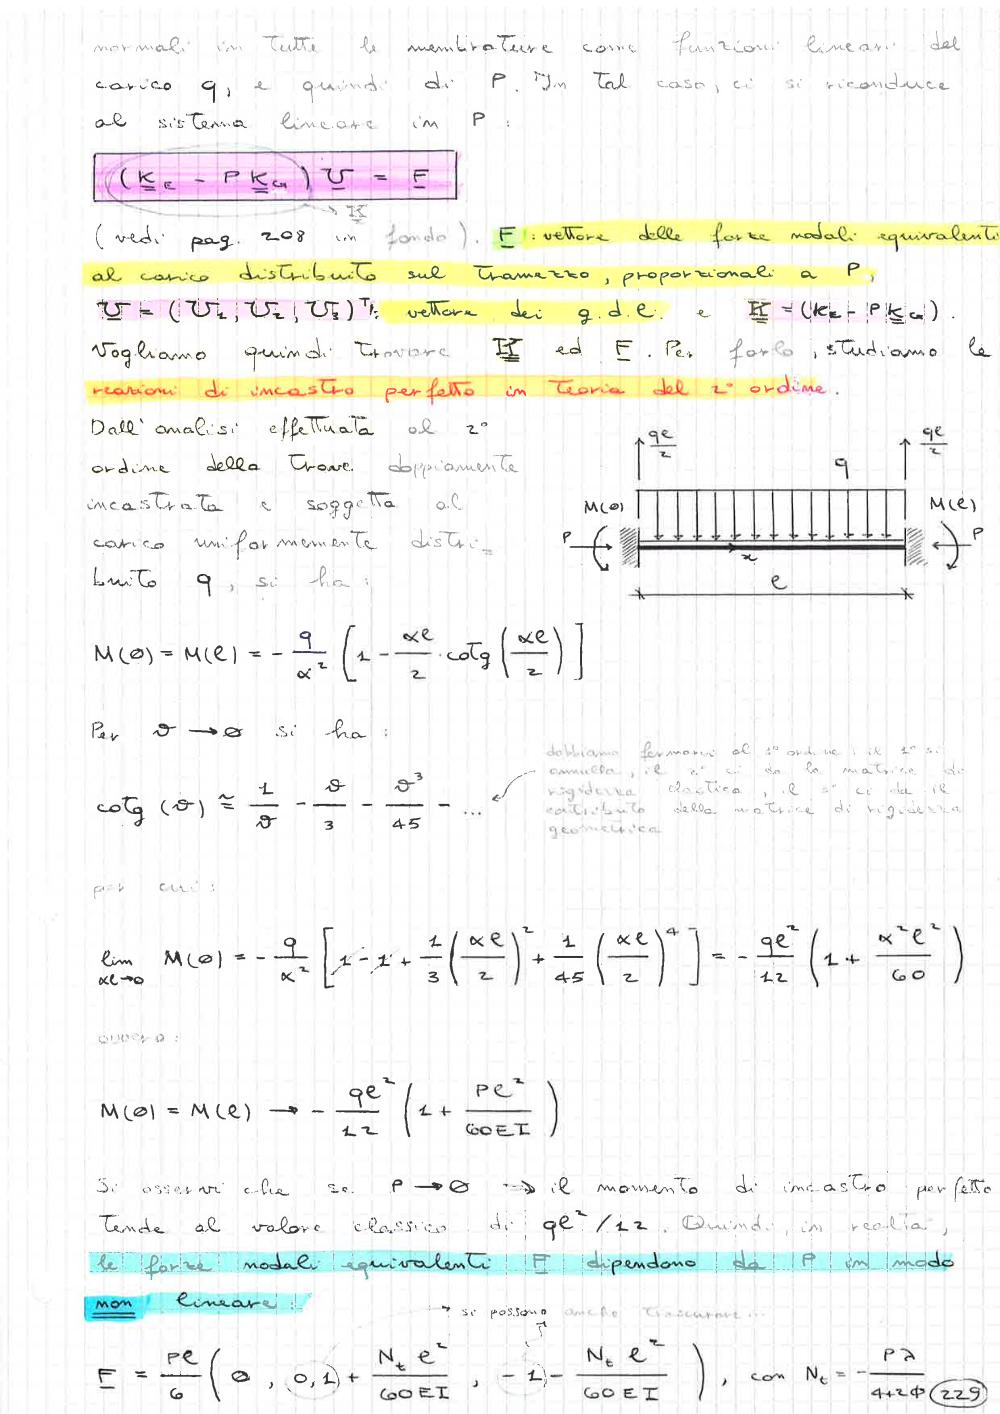 normali in tutte le membrature come funzioni lineari del
carico q, e quindi di P. In tal caso, ci si riconduce
al sistema lineare in P :
(K_E - P K_G) U = F
→ K
(vedi pag. 208 in fondo). F : vettore delle forze nodali equivalenti
al carico distribuito sul tramezzo, proporzionali a P,
U = (U1, U2, U3)^T: vettore dei g.d.l. e K = (K_E - P K_G).
Vogliamo quindi trovare K ed F. Per farlo, studiamo le
reazioni di incastro perfetto in teoria del 2° ordine.
Dall'analisi effettuata al 2°
ordine della trave doppiamente
incastrata e soggetta al
carico uniformemente distri-
buito q, si ha :
qℓ/2 qℓ/2
q
M(0) M(ℓ)
P P
x
ℓ
M(0) = M(ℓ) = - q/α² [1 - αℓ/2 · cotg (αℓ/2)]
Per ϑ → 0 si ha :
cotg (ϑ) ≅ 1/ϑ - ϑ/3 - ϑ³/45 - ...
dobbiamo fermarci al 3° ordine : il 1° si
annulla, il 2° ci da la matrice di
rigidezza elastica, il 3° ci da il
contributo della matrice di rigidezza
geometrica
per cui :
lim αℓ→0 M(0) = - q/α² [1 - 1 + 1/3 (αℓ/2)² + 1/45 (αℓ/2)⁴] = - qℓ²/12 (1 + α²ℓ²/60)
ovvero :
M(0) = M(ℓ) → - qℓ²/12 (1 + Pℓ²/60EI)
Si osservi che se P → 0 ⇒ il momento di incastro perfetto
tende al valore classico di qℓ²/12. Quindi, in realtà,
le forze nodali equivalenti F dipendono da P in modo
non lineare :
→ si possono anche trascurare ...
F = Pℓ/6 (0, 0, 1 + N_t ℓ²/60EI, -1 - N_t ℓ²/60EI), con N_t = - Pλ/4+2Φ
229